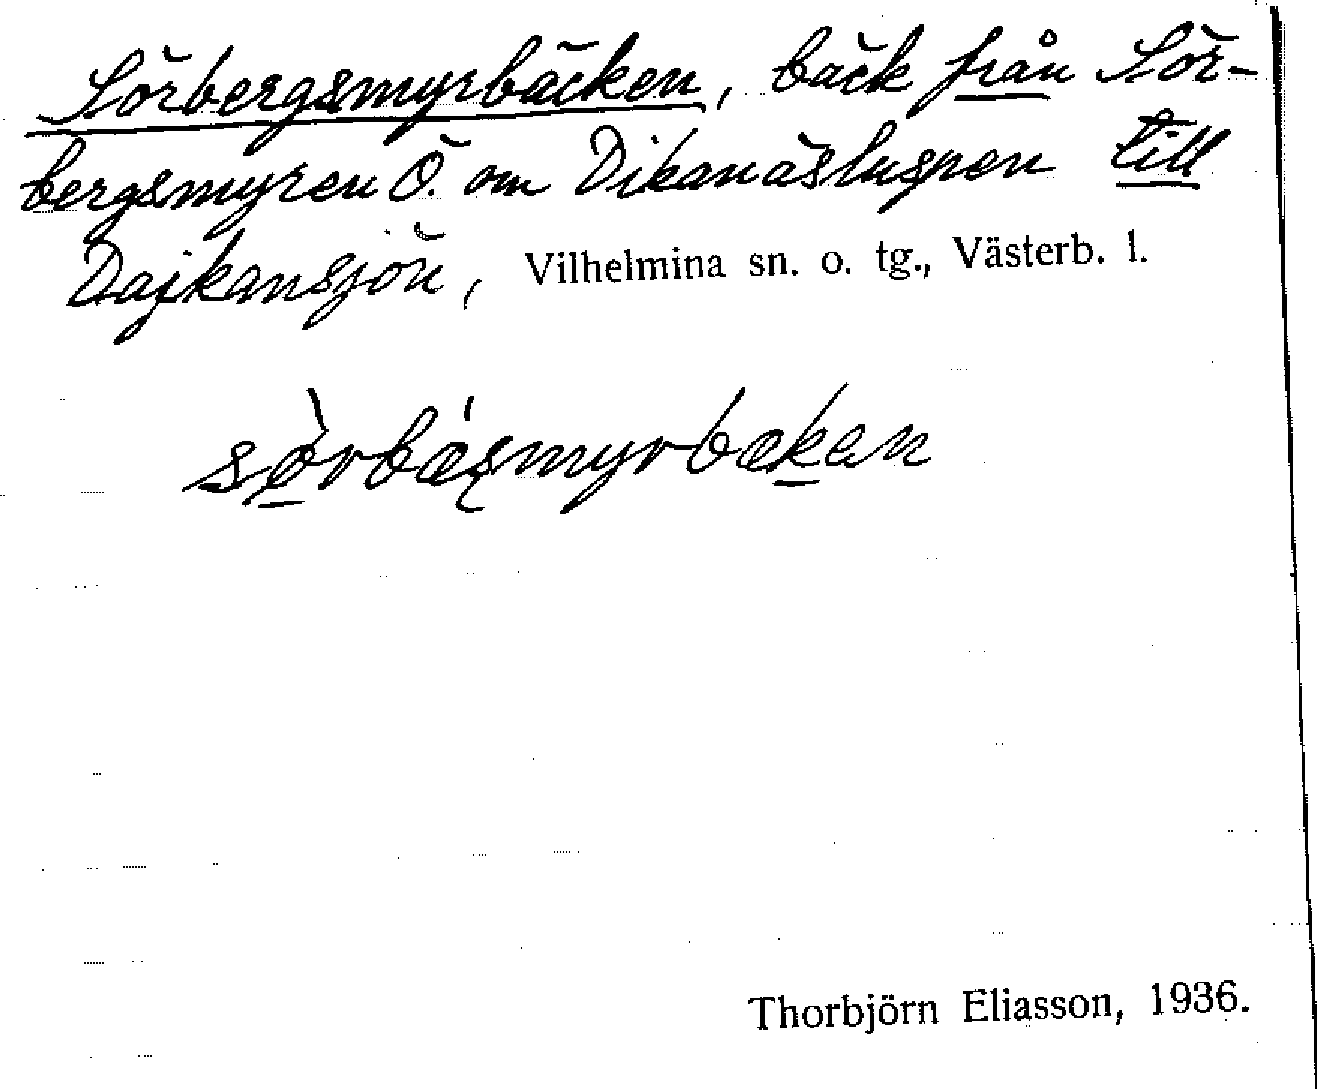 Sörbergsmyrbäcken, bäck från Sör-
bergsmyren Ö. om Dikanäsluspen till
Dajkansjön, Vilhelmina sn. o. tg., Västerb. l.
sø̀rbǽʂmyrbækan
Thorbjörn Eliasson, 1936.